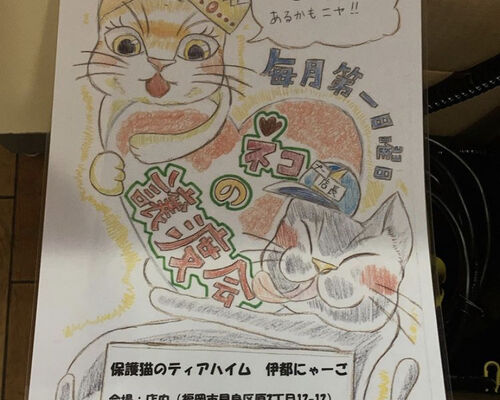 あるかもニャ!!
毎月第一日曜日
ネコの
譲渡会
店長
保護猫のティアハイム 伊都にゃーご
会場:店内(福岡市早良区原7丁目12-12)